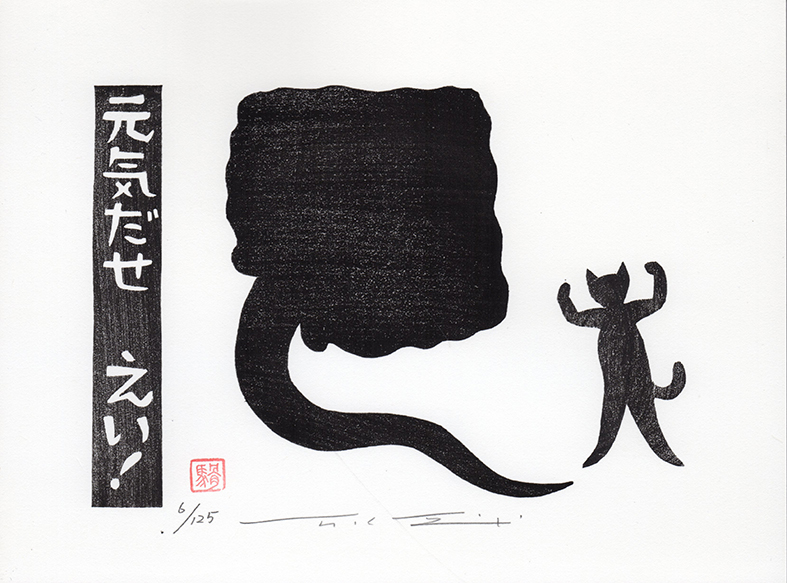 元気だせ えい!
6/125